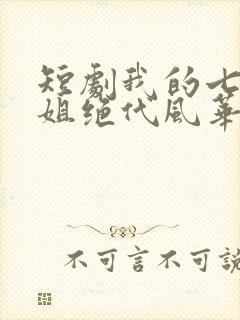 短劇我的七
姐絕代風華
不可言不可說